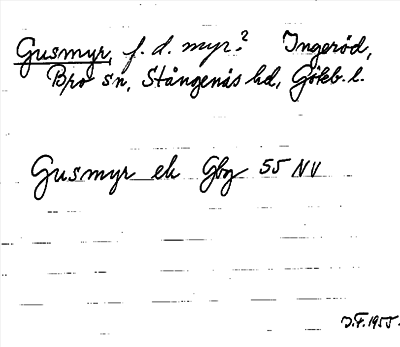 Gusmyr, f. d. myr? Ingeröd,
Bro sn, Stångenäs hd, Gökb. l.
Gusmyr ek Gbg 55 NV
J.F. 1955.